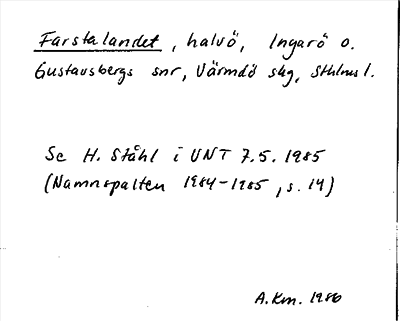 Farstalandet, halvö, Ingarö o.
Gustavsbergs snr, Värmdö skg, Sthlms l.
Se H. Ståhl i UNT 7.5.1985
(Namnspalten 1984-1985, s. 14)
A.Km. 1986